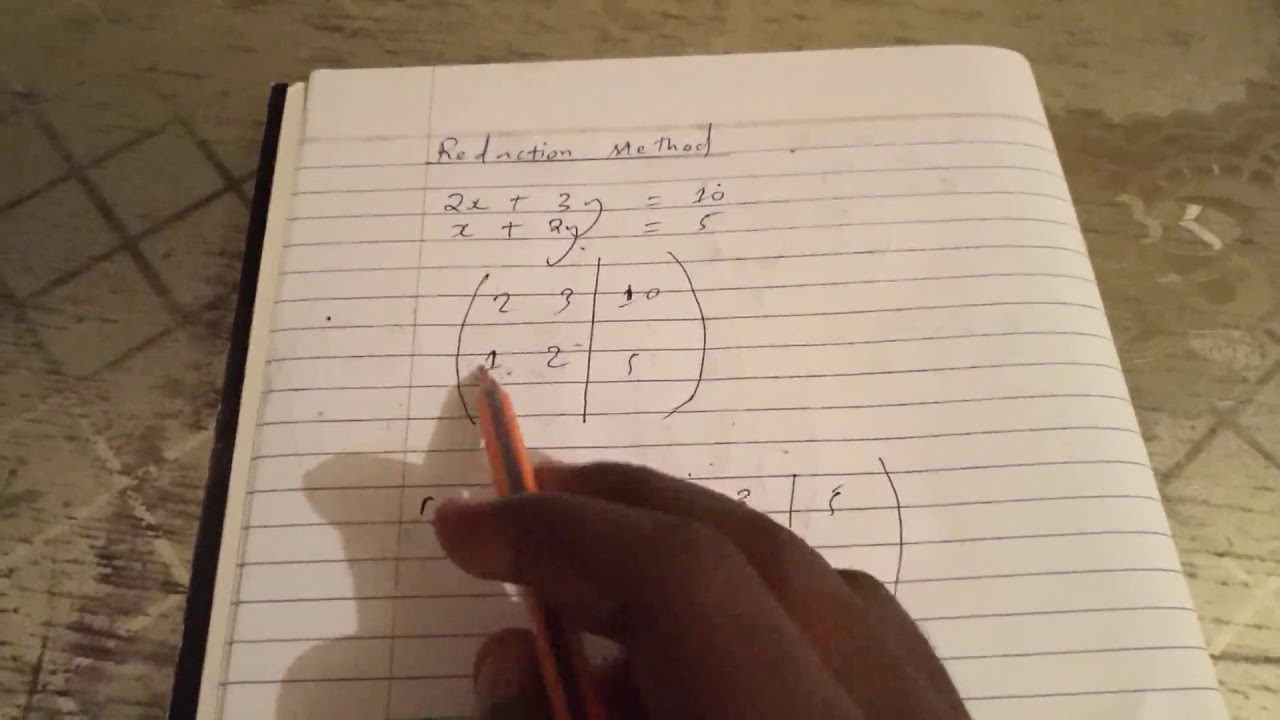 Reduction Method
2x + 3y = 10
x + 2y = 5
2 3 | 10
1 2 | 5
2 | 5